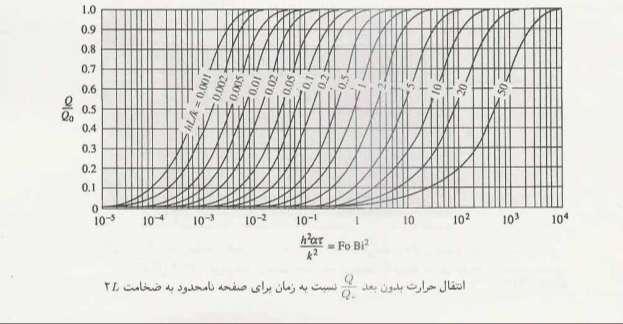 1.0
0.9
0.8
0.7
0.6
0.5
0.4
0.3
0.2
0.1
0
Q/Q₀
hL/k = 0.001
0.002
0.005
0.01
0.02
0.05
0.1
0.2
0.5
1
2
5
10
20
50
10⁻⁵ 10⁻⁴ 10⁻³ 10⁻² 10⁻¹ 1 10 10² 10³ 10⁴
h²ατ/k² = Fo Bi²
انتقال حرارت بدون بعد Q/Q۰ نسبت به زمان برای صفحه نامحدود به ضخامت ۲L